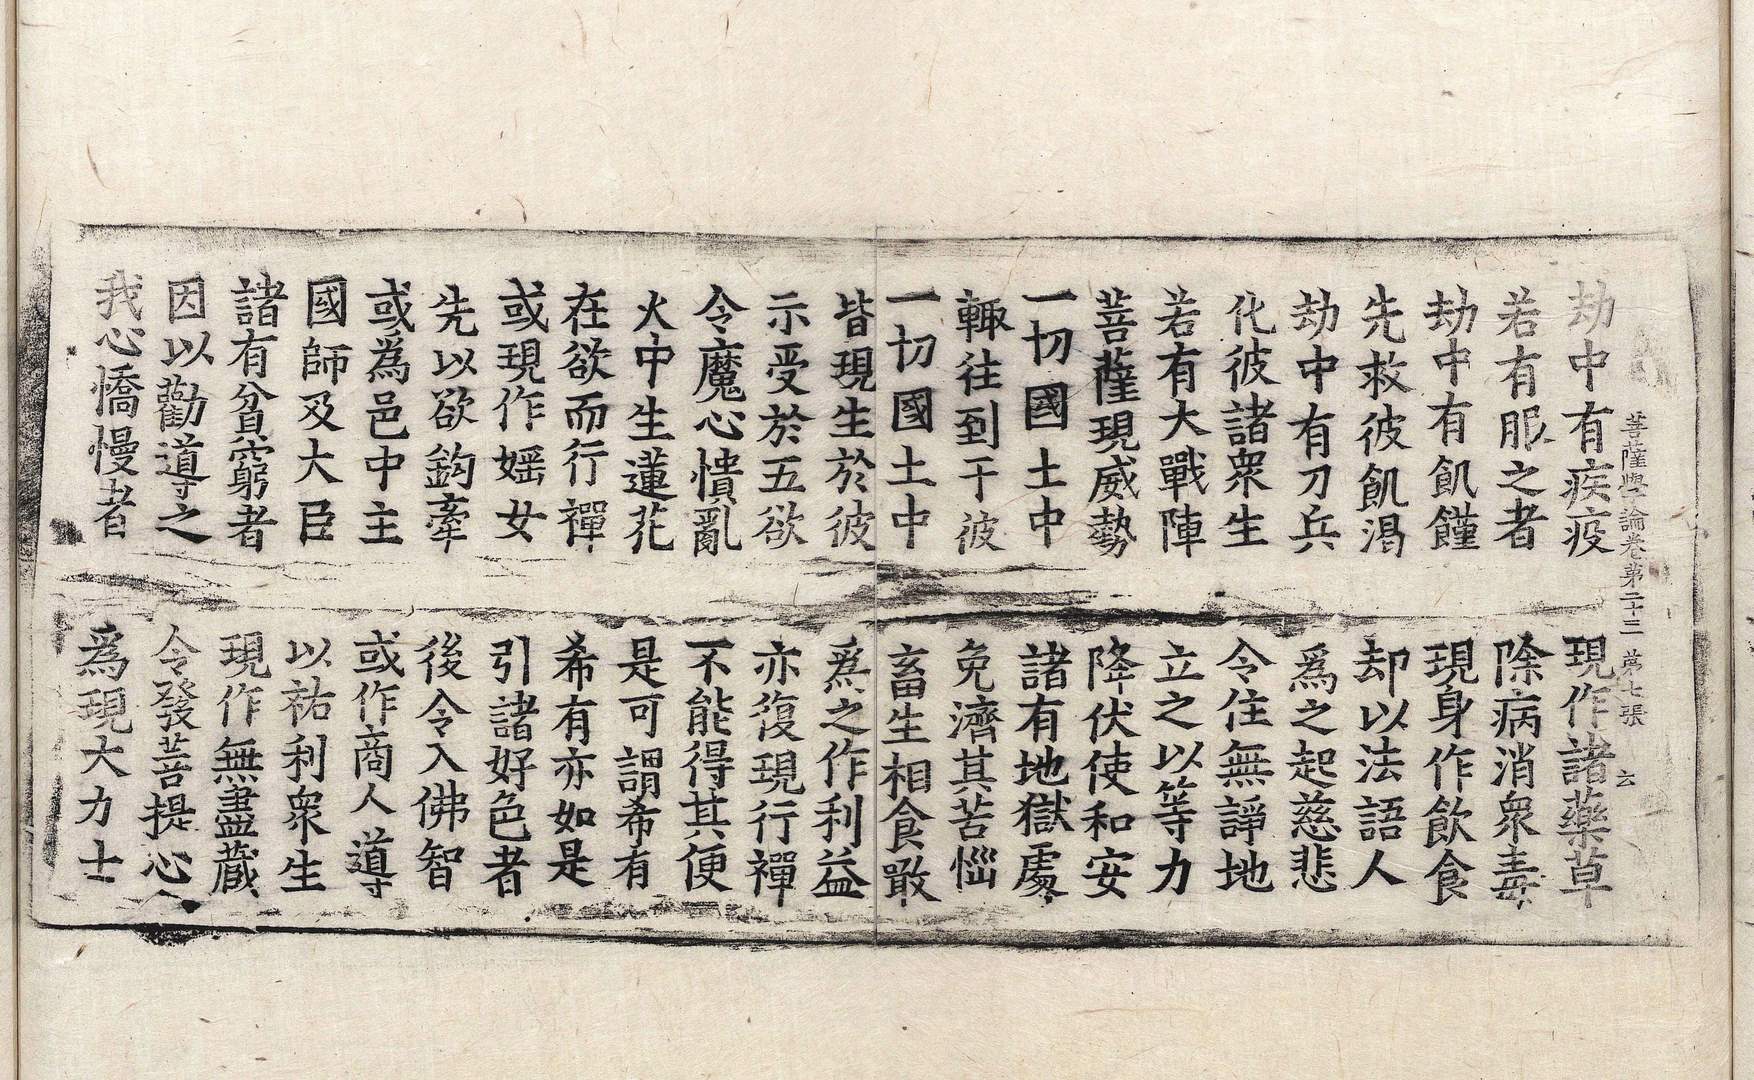 菩薩學論卷第二十三 第七張 六
劫中有疾疫 現作諸藥草
若有服之者 除病消衆毒
劫中有飢饉 現身作飲食
先救彼飢渴 却以法語人
劫中有刀兵 爲之起慈悲
化彼諸衆生 令住無諍地
若有大戰陣 立之以等力
菩薩現威勢 降伏使和安
一切國土中 諸有地獄處
輙往到于彼 免濟其苦惱
一切國土中 畜生相食噉
皆現生於彼 爲之作利益
示受於五欲 亦復現行禪
令魔心憒亂 不能得其便
火中生蓮花 是可謂希有
在欲而行禪 希有亦如是
或現作婬女 引諸好色者
先以欲鈎牽 後令入佛智
或爲邑中主 或作商人導
國師及大臣 以祐利衆生
諸有貧窮者 現作無盡藏
因以勸導之 令發菩提心
我心憍慢者 爲現大力士